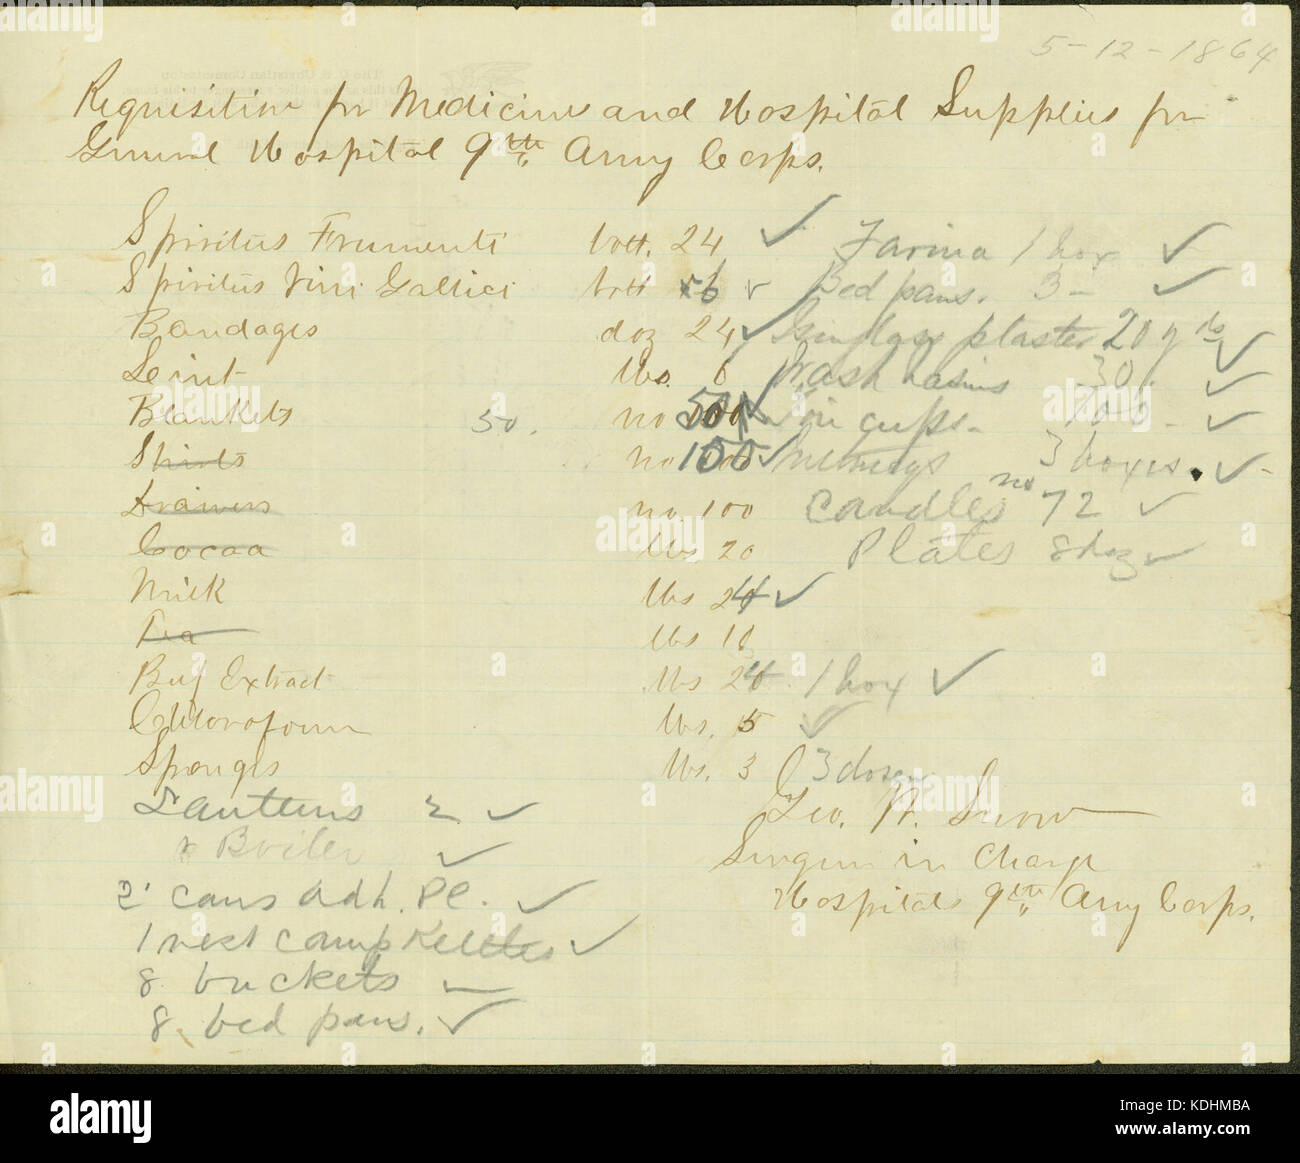 5-12-1864
Requisition for Medicines and Hospital Supplies for
General Hospital 9th Army Corps.
Spiritus Frumenti bott. 24 ✓ Farina 1 box ✓
Spiritus Vini Gallici bott 6 ✓ Bed pans. 3 - ✓
Bandages doz 24 ✓ Isinglass plaster 20 yds ✓
Leint lbs. 6 Wash basins 30. ✓
Blankets 50. no 50 ✓ Tin cups - 100 - ✓
Shirts no 100 ✓ Nutmegs 3 boxes. ✓
Drawers no. 100 candles no 72 ✓
Cocoa lbs 20 Plates 8 doz ✓
Milk lbs 24 ✓
Tea lbs 10
Beef Extract lbs 24 1 box ✓
Chloroform lbs. 5 ✓
Sponges lbs. 3 3 dozen
Lanterns 2 ✓
Geo. W. Snow
Boiler ✓
Surgeon in Charge
2 cans adh. Pl. ✓
Hospitals 9th Army Corps.
1 nest camp Kettles ✓
8 buckets
8 bed pans. ✓
alamy
Image ID: KDHMBA
www.alamy.com